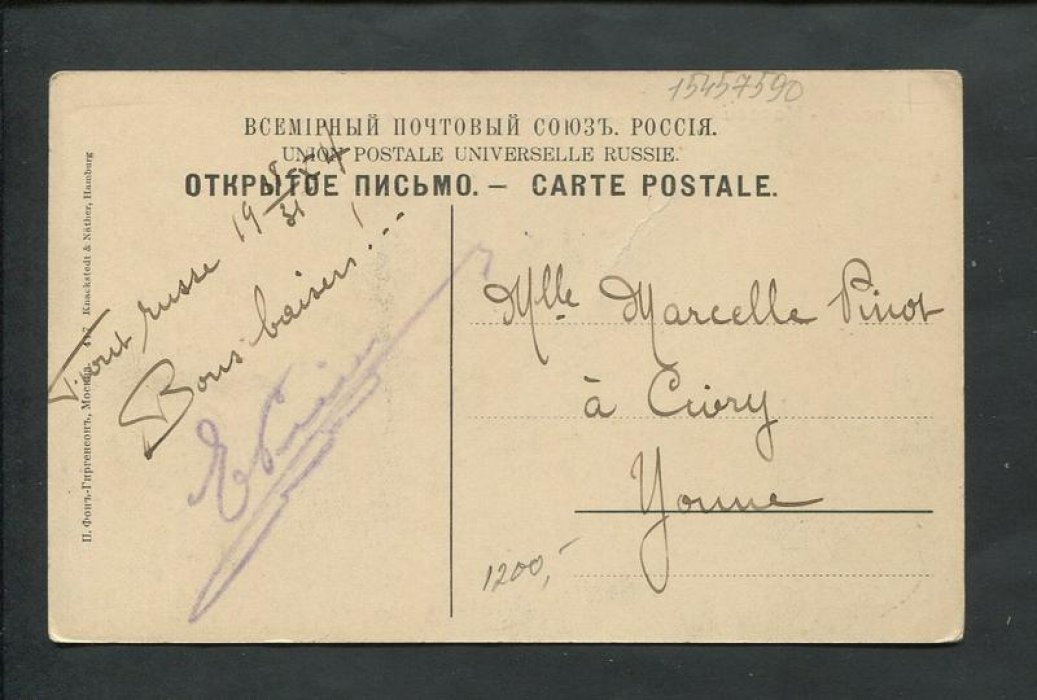 15457590
ВСЕМІРНЫЙ ПОЧТОВЫЙ СОЮЗЪ. РОССІЯ.
UNION POSTALE UNIVERSELLE RUSSIE.
ОТКРЫТОЕ ПИСЬМО. — CARTE POSTALE.
Tout russe 19
31
Bons baisers!...
Mlle Marcelle Pinot
à Civry
Yonne
1200,-
П. Фонъ-Гиргенсонъ, Москва. Knackstedt & Näther, Hamburg